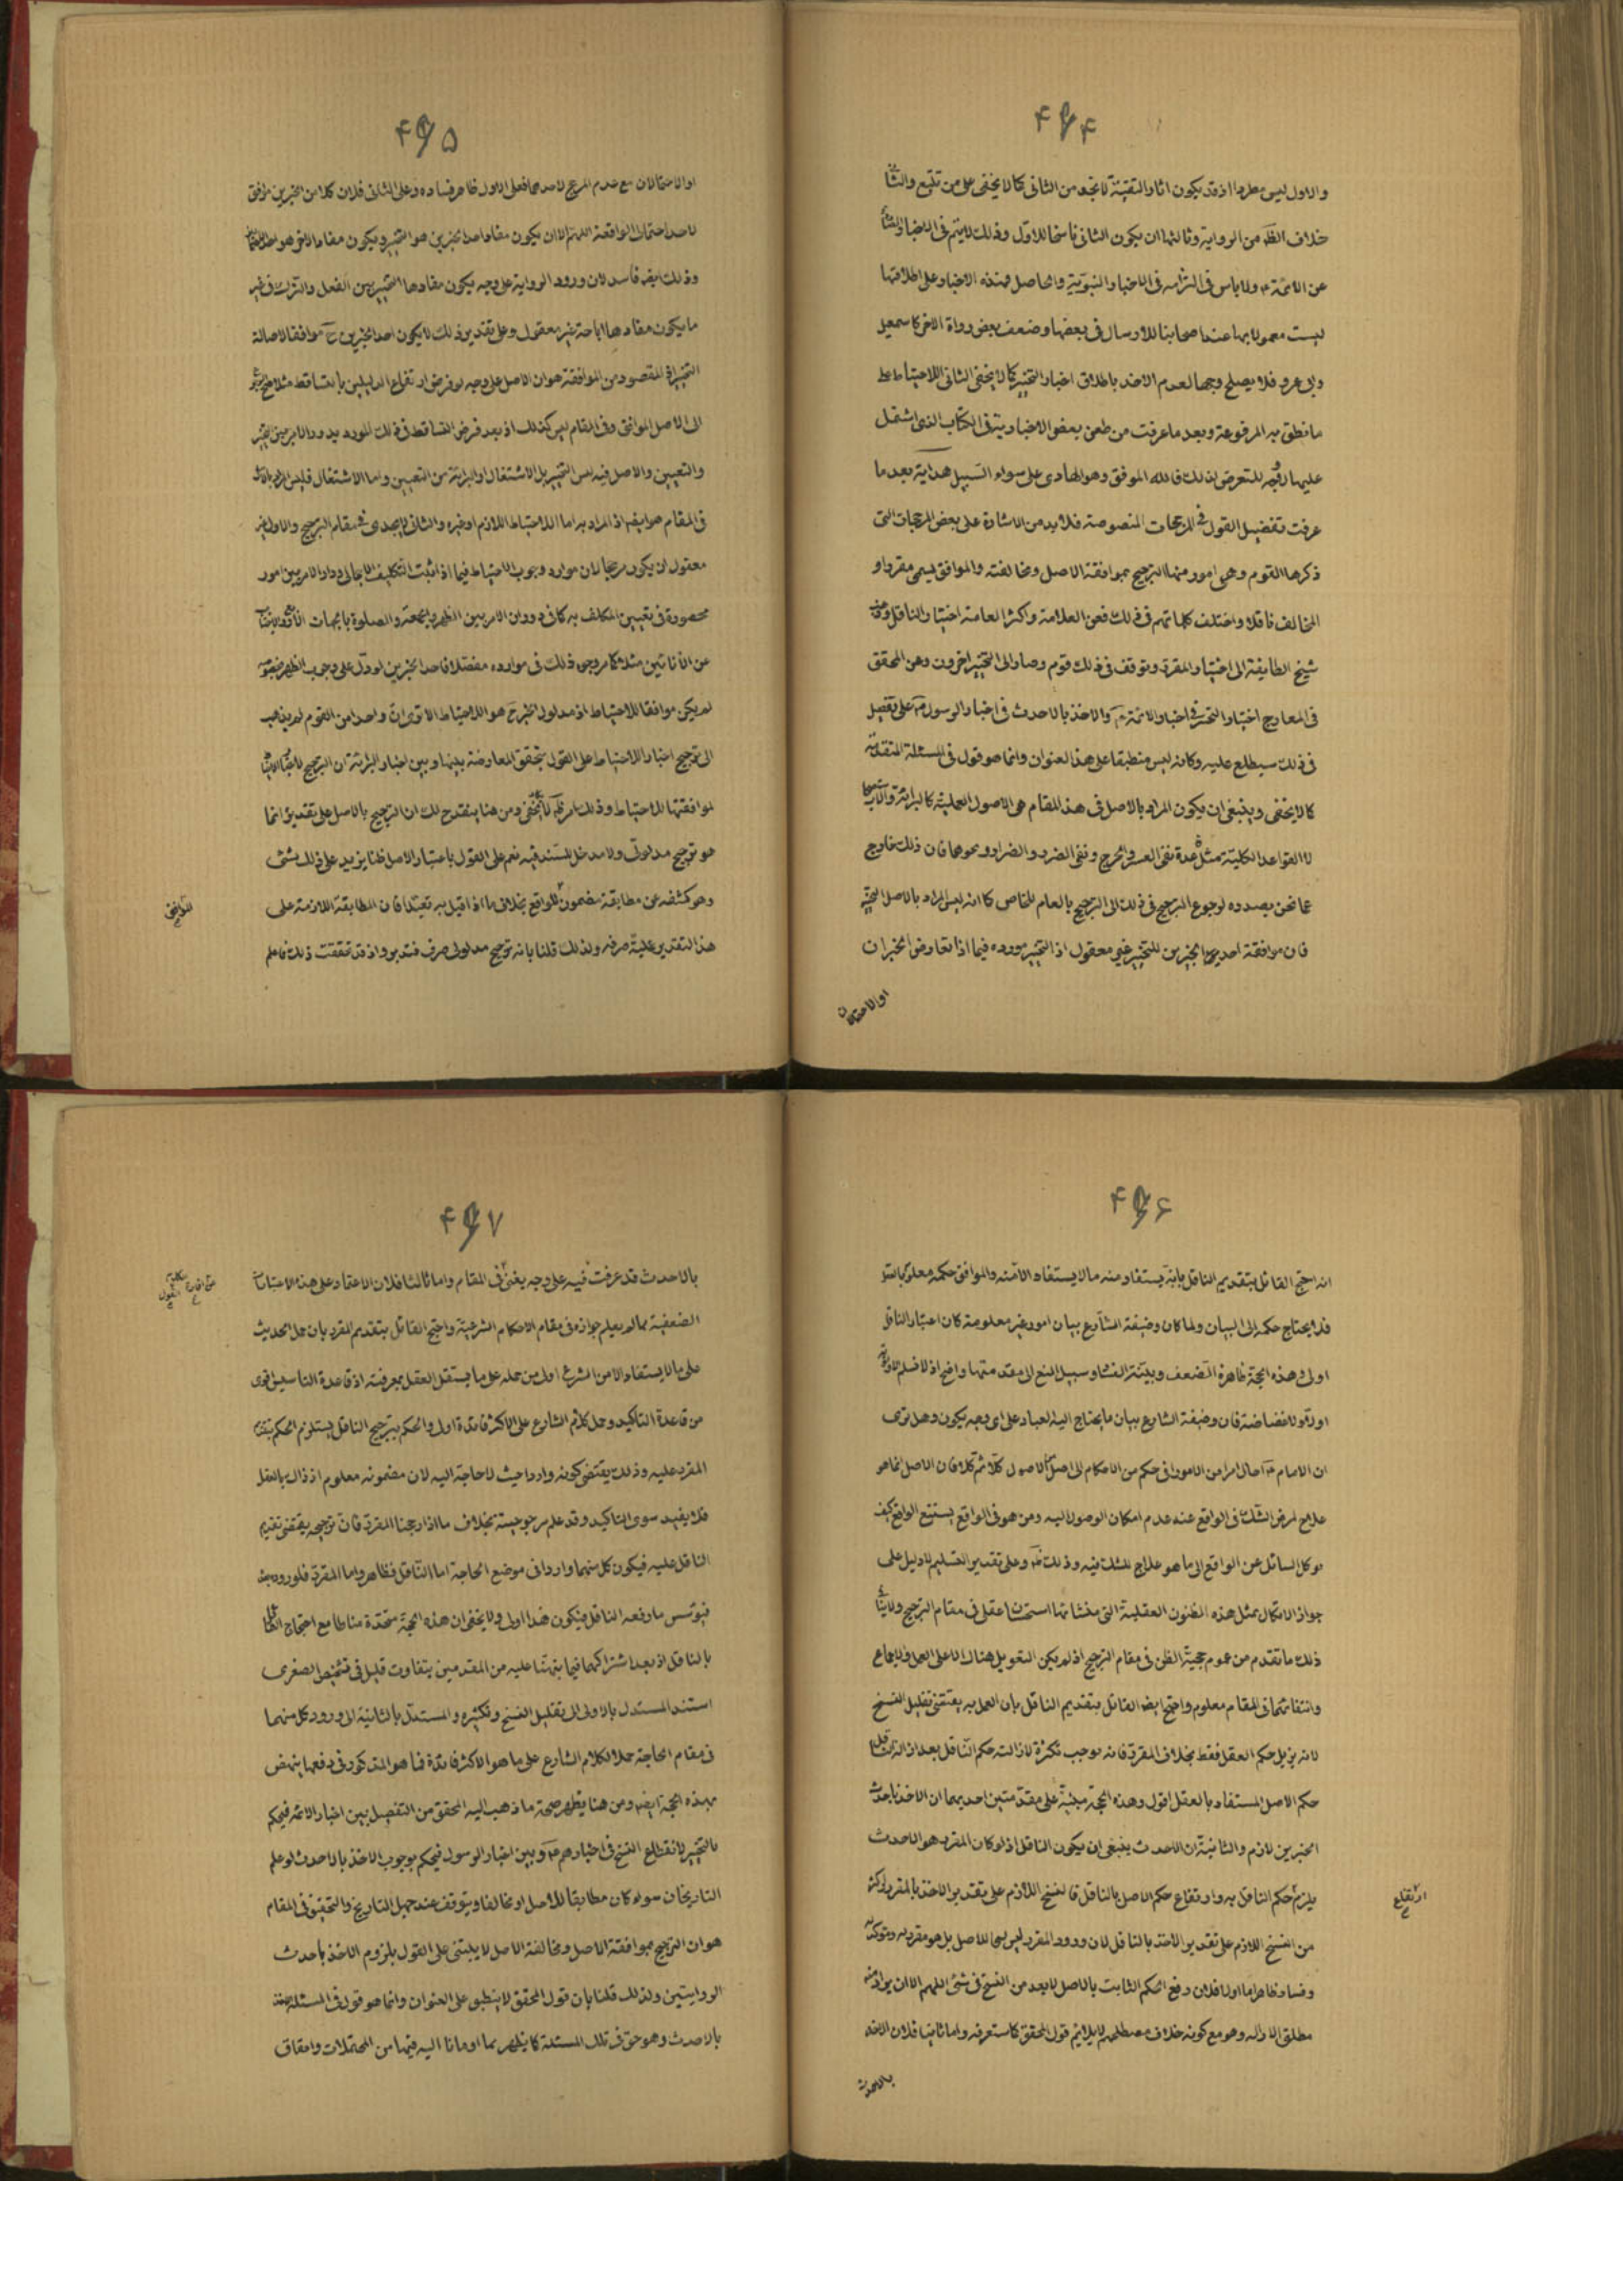 ۴۹۴
والاول ليس مطردا اذ قد يكون اثار التقية لائحة من الثانى كما لا يخفى على من تتبع والثانى
خلاف الظ من الرواية وثالثها ان يكون الثانى ناسخا للاول وذلك لا يتم فى الاخبار
عن الائمة ولا باس فى التزامه فى الاخبار النبوية والحاصل فهذه الاخبار على اطلاقها
ليست معمولا بها عند اصحابنا للارسال فى بعضها وضعف بعض رواة الاخر كاسمعيل
وابى عمرو فلا يصلح وجها لعدم الاخذ باطلاق اخبار التخيير كما لا يخفى الثانى الاحتياط على
ما نطق به المرفوعة وبعد ما عرفت من طعن بعض الاخبارية فى الكتاب الذى اشتمل
عليها لا وجه للتعرض لذلك فالله الموفق وهو الهادى على سواء السبيل هداية بعد ما
عرفت تفضيل القول فى المرجحات المنصوصة فلا بد من الاشارة على بعض المرجحات التى
ذكرها القوم وهى امور منها الترجيح بموافقة الاصل ومخالفته والموافق يسمى مقررا و
المخالف ناقلا واختلف كلماتهم فى ذلك فعن العلامة واكثر العامة اختيار الناقل وعن
شيخ الطايفة الى اختيار المقرر وتوقف فى ذلك قوم وصار الى التخيير اخرون وعن المحقق
فى المعارج اختيار التخيير فى اخبار الائمة والاخذ بالاحدث فى اخبار الرسول على تفصيل
فى ذلك سيطلع عليه وكانه ليس منطبقا على هذا العنوان وانما هو قول فى المسئلة المتقدمة
كما لا يخفى وينبغى ان يكون المراد بالاصل فى هذا المقام هى الاصول العملية كالبرائة والاستصحاب
لا القواعد الكلية مثل قاعدة نفى العسر والحرج ونفى الضرر والضرار ونحوها فان ذلك خارج
عما نحن بصدده لرجوع الترجيح فى ذلك الى الترجيح بالعام للخاص كما انه ليس المراد بالاصل التخيير
فان موافقة احد الخبرين للتخيير غير معقول اذ التخيير مورده فيما اذا تعارض الخبران
او الاحتمالان
۴۹۵
او الاحتمالان مع عدم المرجح لاحدهما فعلى الاول ظاهر فساده وعلى الثانى فلان كلا من الخبرين موافق
لاحد احتمالى الواقعة اللهم الا ان يكون مفاد احد الخبرين هو التخيير ويكون مفاد الاخر هو احد
وذلك ايضا فاسد لان ورود الرواية على وجه يكون مفادها التخيير بين الفعل والترك فى غير
ما يكون مفادها اباحة غير معقول وعلى تقدير ذلك لا يكون احد الخبرين ح موافقا لاصالة
التخيير اذ المقصود من الموافقة هو ان الاصل على وجه لو فرض ارتفاع الدليلين بالتساقط مثلا
الى الاصل الموافق وفى المقام ليس كذلك اذ بعد فرض التساقط فى ذلك المورد يدور الامر بين التخيير
والتعيين والاصل فيه ليس التخيير بل الاشتغال او البرائة من التعيين واما الاشتغال فليس المراد
فى المقام هو ايضا اذ المراد به اما الاحتياط اللازم او غيره والثانى لا يجدى فى مقام الترجيح والاول غير
معقول ان يكون مرجحا لان موارد وجوب الاحتياط فيما اذا ثبت التكليف الاجمالى ودار الامر بين امور
محصورة فى تعيين المكلف به كما فى دوران الامر بين الظهر والجمعة والصلوة بالجهات
من الانائين مثلا كما مر وجه ذلك فى موارده مفصلا فاحد الخبرين لو دل على وجوب الظهر
لم يكن موافقا للاحتياط اذ مدلول الخبر ح هو الاحتياط الا ترى ان واحدا من القوم لم يذهب
الى ترجيح اخبار الاحتياط على القول بتحقق المعارضة بينها وبين اخبار البرائة ان الترجيح
لموافقتها للاحتياط وذلك امر ظ لا يخفى ومن هنا ينقدح لك ان الترجيح بالاصل على تقديره انما
هو ترجيح مدلولى ولا مدخل للسند فيه نعم على القول باعتبار الاصل ظنا يزيد على ذلك بشئ
وهو كشفه عن مطابقة مضمون للواقع بخلاف ما اذا قيل به تعبدا فان المطابقة اللازمة على
هذا التقدير علية صرفة ولذلك قلنا بانه ترجيح مدلولى صرف فتدبر واذ قد تحققت ذلك فاعلم
۴۹۶
انه احتج القائل بتقديم الناقل بانه يستفاد منه ما لا يستفاد الا منه والموافق حكمه معلوم
فلا يحتاج حكمه الى البيان ولما كان وضيفة الشارع بيان امور غير معلومة كان اعتبار الناقل
اولى وهذه الحجة ظاهرة الضعف وبينة الفساد وسبيل المنع الى مقدمتها واضح اذ لا نسلم
اولا فضاضة فان وضيفة الشارع بيان ما يحتاج اليه العباد على اى وجه يكون وهل ترى
ان الامام احال امرا من الامور او حكم من الاحكام الى اصل من الاصول كلا ثم كلا فان الاصل انما هو
علاج لمرض الشك فى الواقع عند عدم امكان الوصول اليه ومن هو فى الواقع يستتبع الواقع كيف
يوكل السائل عن الواقع الى ما هو علاج للشك فيه وذلك ظ وعلى تقدير التسليم لا دليل على
جواز الاتكال بمثل هذه الظنون العقلية التى منشائها استحسان عقلى فى مقام الترجيح ولا
ذلك ما تقدم من عموم حجية الظن فى مقام الترجيح اذ لم يكن التعويل هناك الا على العمل والاجماع
وانتفائهما فى المقام معلوم واحتج ايضا القائل بتقديم الناقل بان العمل به يقتضى تقليل النسخ
لانه يزيل حكم العقل فقط بخلاف المقرر فانه يوجب تكثره لازالته حكم الناقل بعد ازالة الناقل
حكم الاصل المستفاد بالعقل اقول وهذه الحجة مبنية على مقدمتين احديهما ان الاخذ باحدث
الخبرين لازم والثانية ان الاحدث ينبغى ان يكون الناقل اذ لو كان المقرر هو الاحدث
يلزم حكم الناقل به وارتفاع حكم الاصل بالناقل فالنسخ اللازم على تقدير الاخذ بالمقرر اكثر
من النسخ اللازم على تقدير الاخذ بالناقل لان ورود المقرر ليس نسخا للاصل بل هو مقرر له وموكد
وفساده ظاهر اما اولا فلان رفع الحكم الثابت بالاصل لا يعد من النسخ فى شئ اللهم الا ان يراد منه
مطلق الازالة وهو مع كونه خلاف مصطلحهم لا يلائم قول المحقق كما ستعرفه واما ثانيا فلان الاخذ
ارتفاع
بالاحدث
۴۹۷
بالاحدث قد عرفت فيه على وجه يغنى فى المقام واما ثالثا فلان الاعتماد على هذه الاعتبارات
الضعيفة مما لم يعلم جوازه فى مقام الاحكام الشرعية واحتج القائل بتقديم المقرر بان حمل الحديث
على ما لا يستفاد الا من الشرع اولى من حمله على ما يستقل العقل بمعرفته اذ قاعدة التاسيس اقوى
من قاعدة التاكيد وحمل كلام الشارع على الاكثر فائدة اولى والحكم بترجيح الناقل يستلزم الحكم بتقدم
المقرر عليه وذلك يقتضى كونه واردا حيث لا حاجة اليه لان مضمونه معلوم اذ ذاك بالعقل
فلا يفيد سوى التاكيد وقد علم مرجوحيته بخلاف ما اذا رجحنا المقرر فان ترجيحه يقتضى تقديم
الناقل عليه فيكون كل منهما واردا فى موضع الحاجة اما الناقل فظاهر واما المقرر فلوروده بعد
فيوسس ما رفعه الناقل فيكون هذا اولى ولا يخفى ان هذه الحجة متحدة مناطا مع احتجاج القائل
بالناقل اذ بعد اشتراكهما فيما نبهنا عليه من المقدمين بتفاوت قليل فى تشخيص الصغرى
استند المستدل بالاولى الى تقليل النسخ وتكثيره والمستدل بالثانية الى ورود كل منهما
فى مقام الحاجة حملا لكلام الشارع على ما هو الاكثر فائدة فما هو المذكور فى دفعها ينهض
بهذه الحجة ايضا ومن هنا يظهر صحة ما ذهب اليه المحقق من التفصيل بين اخبار الائمة فيحكم
بالتخيير لانقطاع النسخ فى اخبارهم وبين اخبار الرسول فيحكم بوجوب الاخذ بالاحدث لو علم
التاريخان سواء كان مطابقا للاصل او مخالفا ويتوقف عند جهل التاريخ والتحقيق فى المقام
هو ان الترجيح بموافقة الاصل ومخالفة الاصل لا يبتنى على القول بلزوم الاخذ باحدث
الروايتين ولذلك قلنا بان قول المحقق لا ينطبق على العنوان وانما هو قول فى المسئلة
بالاحدث وهو حق فى تلك المسئلة كما يظهر مما اومانا اليه فيها من المحتملات وامقاق